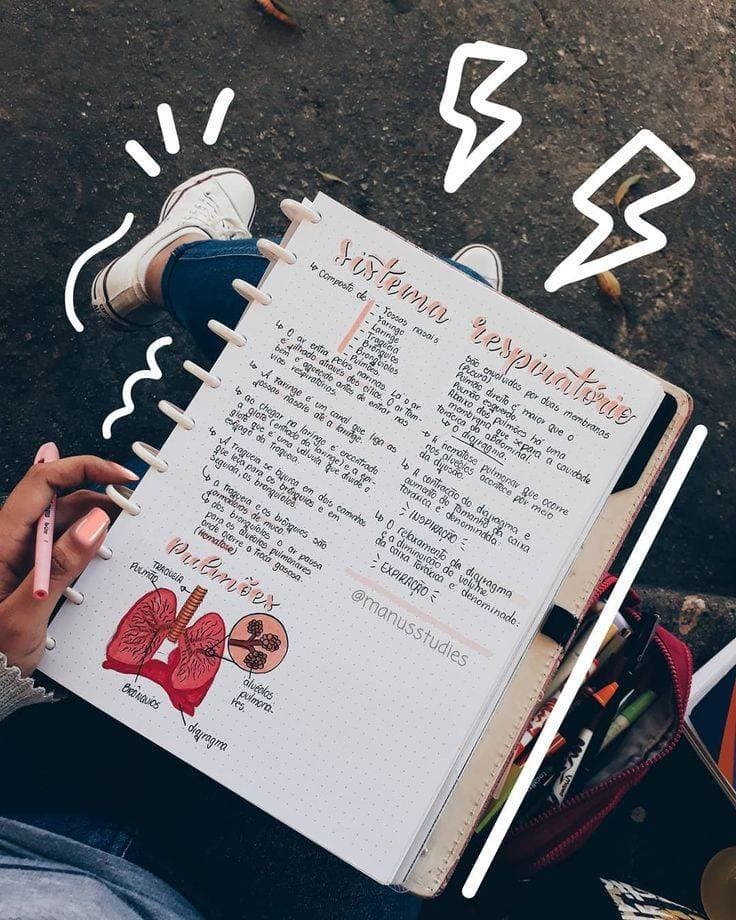 Sistema respiratório
↳ Composto de:
- Fossas nasais
- Faringe
- Laringe
- Traqueia
- Brônquios
- Bronquíolos
- Pulmões
↳ O ar entra pelas narinas. Lá o ar
é filtrado através dos cílios. O ar tam-
bém é aquecido antes de entrar nas
vias respiratórias.
↳ A faringe é um canal que liga as
fossas nasais até a laringe.
↳ ao chegar na laringe é encontrado
a glote (entrada da laringe) e a epi-
glote que é uma válvula que divide o
esôfago da traqueia.
↳ A traqueia se bifurca em dois caminhos
que leva para os brônquios e em
seguida, os bronquíolos.
↳ a traqueia e os brônquios são
produtores de muco.
↳ dos bronquíolos o ar passa
para os alvéolos pulmonares
onde ocorre a troca gasosa.
(hematose)
São envolvidos por duas membranas
(Pleura)
Pulmão direito é maior que o
Pulmão esquerdo
Abaixo dos pulmões há uma
membrana que separa a cavidade
torácica da abdominal:
↳ diafragma.
↳ A hematose pulmonar que ocorre
nos alvéolos acontece por meio
da difusão.
↳ A contração do diafragma e
aumento do tamanho da caixa
torácica é denominada:
INSPIRAÇÃO
↳ O relaxamento do diafragma
e a diminuição do volume
da caixa torácica é denominado:
EXPIRAÇÃO
@manusstudies
Pulmões
TRAQUEIA
PULMÃO
BRÔNQUIOS
diafragma
alvéolos
pulmona-
res.